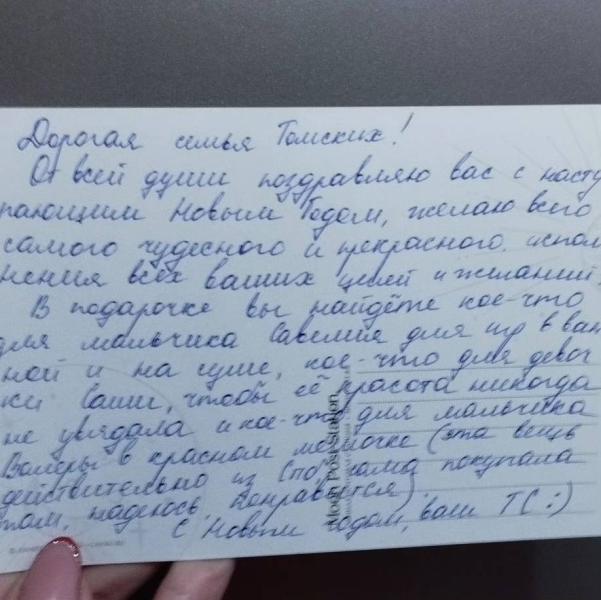 Дорогая семья Томских!
От всей души поздравляю вас с насту
пающим Новым Годом, желаю всего
самого чудесного и прекрасного, испол
нения всех ваших целей и желаний.
В подарочке вы найдёте кое-что
для мальчика Савелия для игр в ван
ной и на суше, кое-что для девоч
ки Саши, чтобы её красота никогда
не увядала и кое-что для мальчика
Валеры в красном мешочке (эта вещь
действительно из Спб, сама покупала
там, надеюсь понравится)
С Новым годом, ваш ТС :)
Moon Post Station